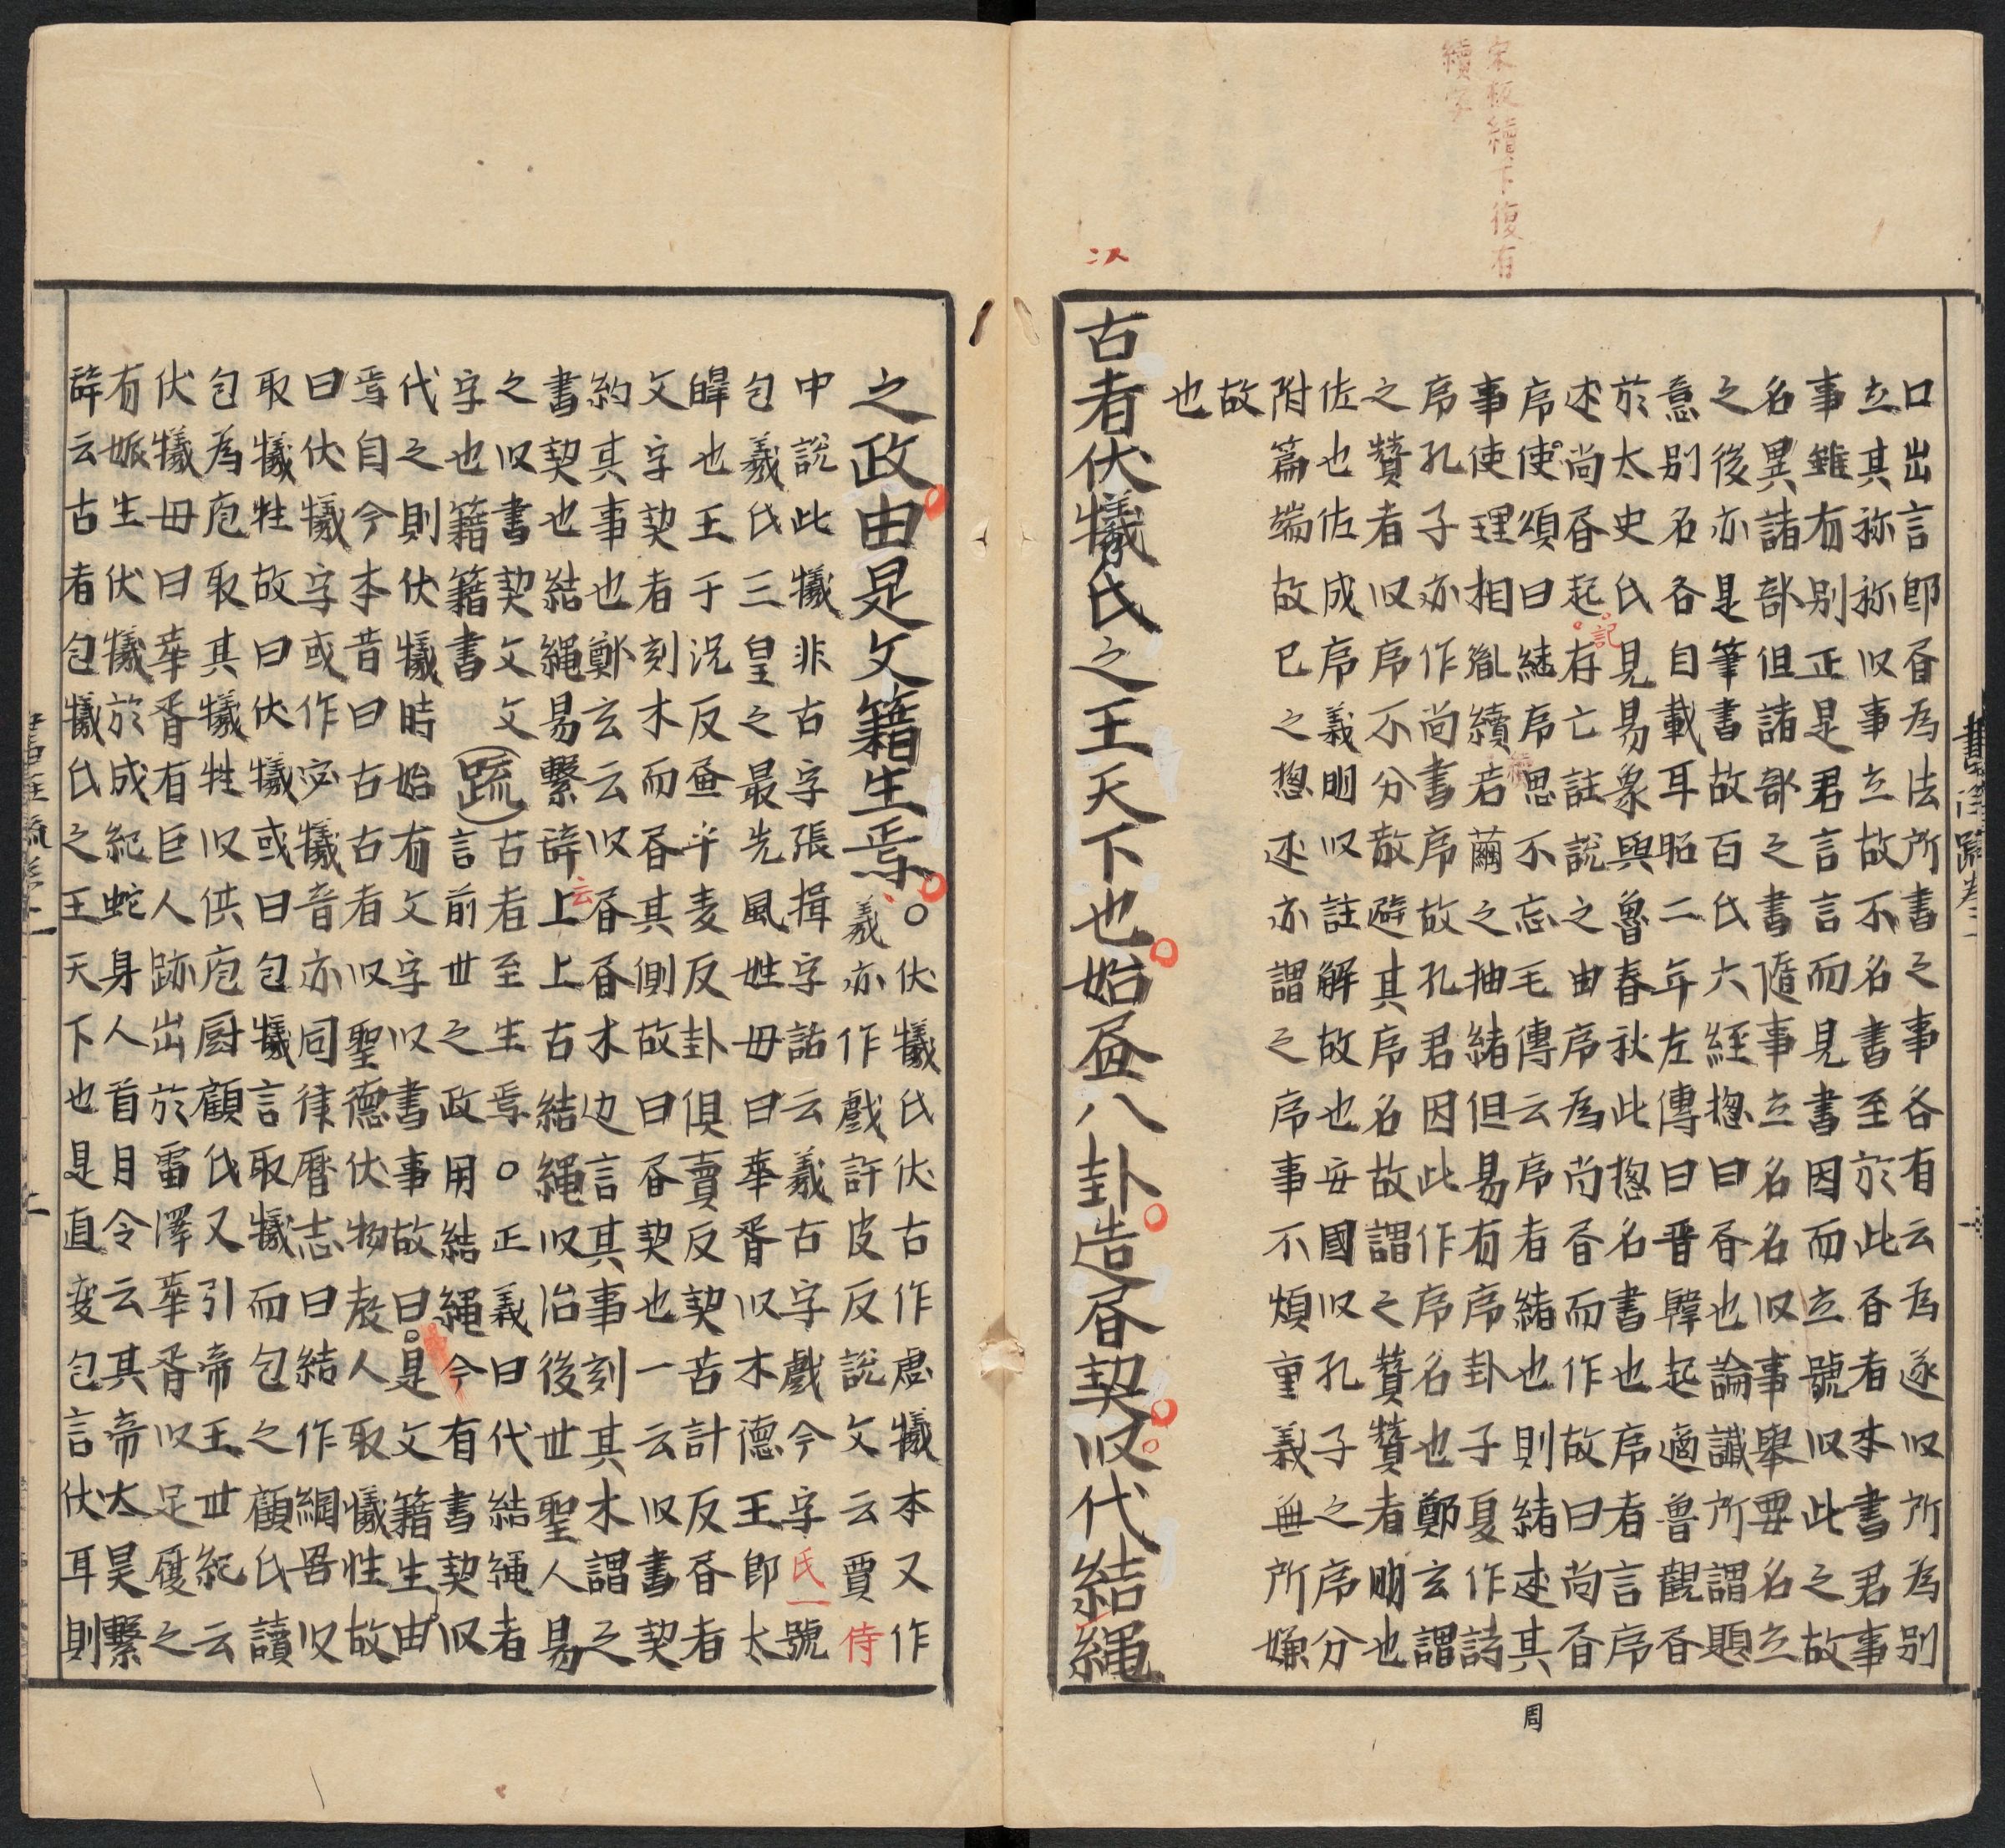 宋板續下復有
續字
口出言即書為法所書之事各有云為遂以所為別
立其称称以事立故不名書至於此書者本書君事
事雖有別正是君言言而見書因而立號以此之故
名異諸部但諸部之書隨事立名名以事舉要名立
之後亦是筆書故百氏六經揔曰書也論讖所謂題
意別名各自載耳昭二年左傳曰晋韓起適魯觀書
於太史氏見易象與魯春秋此揔名書也序者言序
述尚書起記存亡註說之由序為尚書而作故曰尚書
序使頌曰繼序思不忘毛傳云序者緒也則緒述其
事使理相胤續續若繭之抽緒但易有序卦子夏作詩
序孔子亦作尚書序故孔君因此作序名也鄭玄謂
之贊者以序不分散避其序名故謂之贊贊者明也
佐也佐成序義明以註解故也安國以孔子之序分
附篇端故已之揔述亦謂之序事不煩重義無所嫌
故
也
古者伏犧氏之王天下也始畫八卦造書契以代結繩
周
之政由是文籍生焉
○伏犧氏伏古作虙犧本又作
羲亦作戲許皮反說文云賈侍
中說此犧非古字張揖字詁云羲古字戲今字氏一號
包羲氏三皇之最先風姓母曰華胥以木德王即太
皞也王于況反畫乎麦反卦俱賣反契苦計反書者
文字契者刻木而書其側故曰書契也一云以書契
約其事也鄭玄云以書書木边言其事刻其木謂之
書契也結繩易繫辞上云上古結繩以治後世聖人易
之以書契文文
字也籍籍書
疏
古者至生焉○正義曰代結繩者
言前世之政用結繩今有書契以
代之則伏犧時始有文字以書事故曰是文籍生由
焉自今本昔曰古古者以聖德伏物教人取犧牲故
曰伏犧字或作宓犧音亦同律暦志曰結作網罟以
取犧牲故曰伏犧或曰包犧言取犧而包之顧氏讀
包為庖取其犧牲以供庖厨顧氏又引帝王世紀云
伏犧母曰華胥有巨人跡出於雷澤華胥以足履之
有娠生伏犧於成紀蛇身人首目令云其帝太昊繫
辞云古者包犧氏之王天下也是直変包言伏耳則